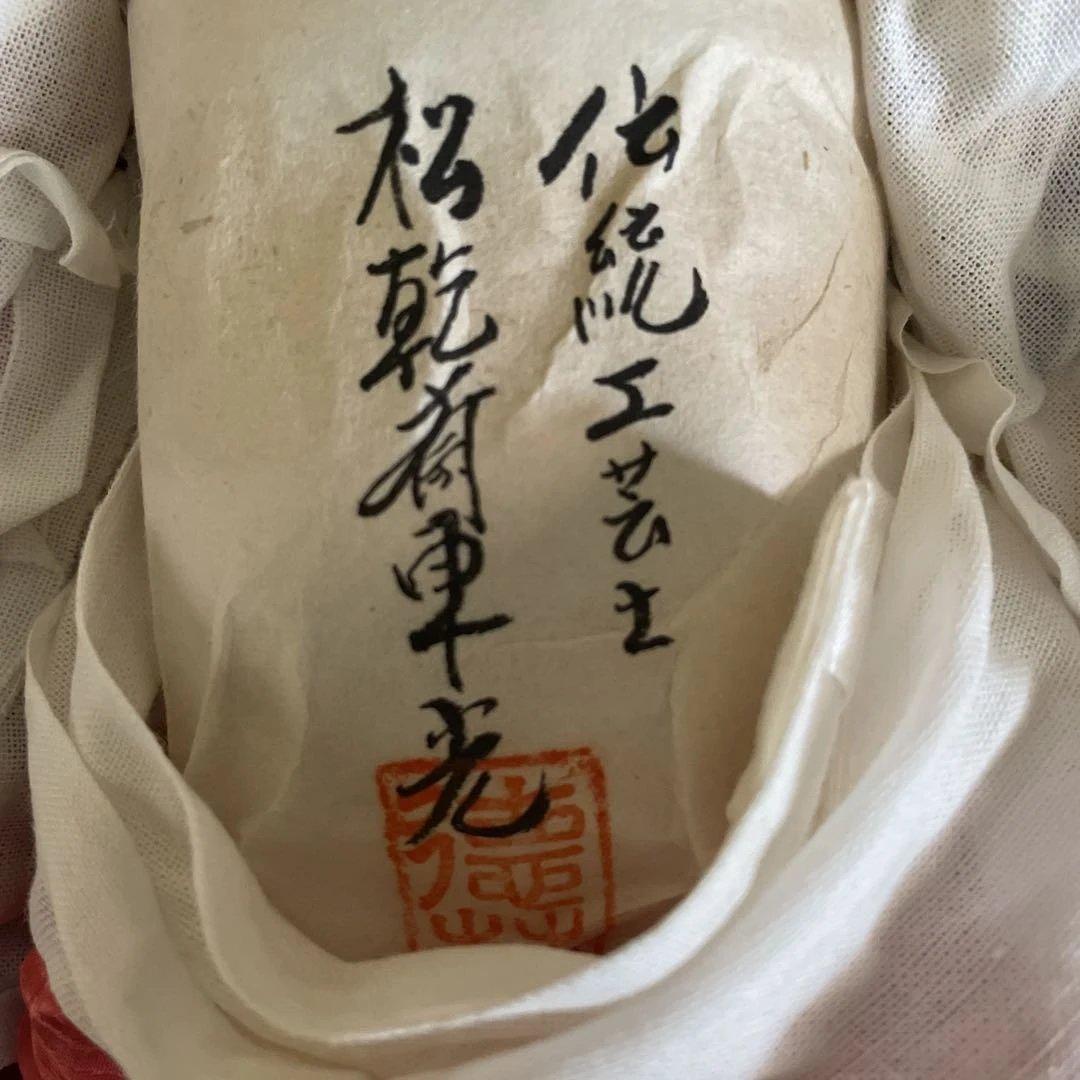 伝統工芸士
松乾斎東光